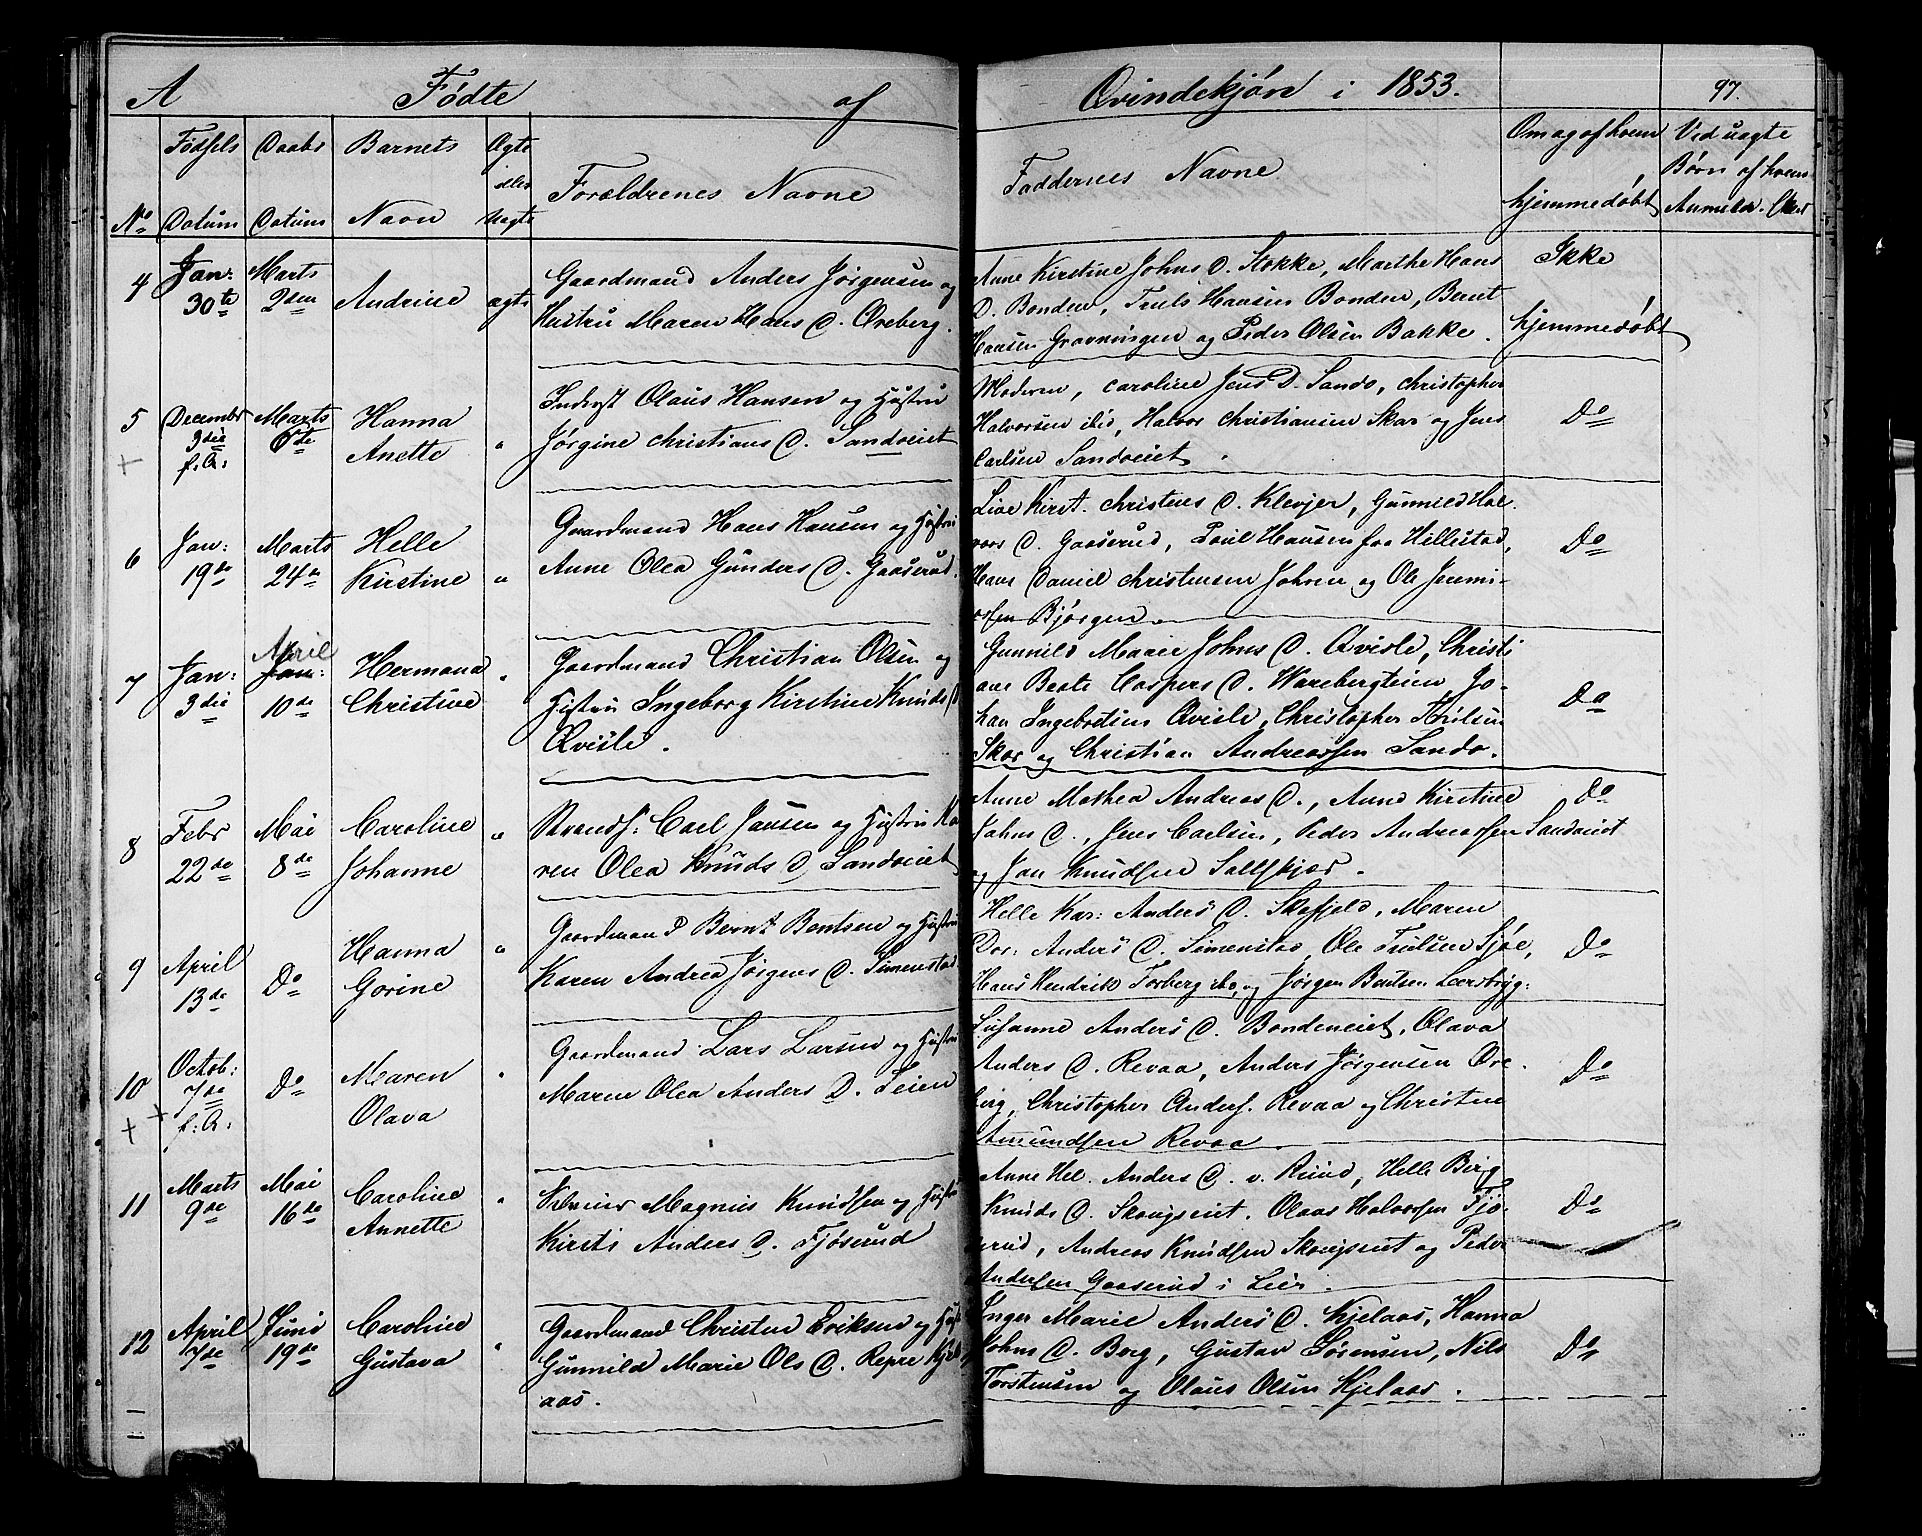 A Fødte af Qvindekjøn i 1853. 97.
No
Fødsels Datum
Daabs Datum
Barnets Navn
Ægte eller Uægte
Forældrenes Navne
Faddernes Navne
Om og af hvem hjemmedøbt
Ved uægte Børn af hvem Anmeld.
4
Jan: 30te
Marts 2den
Andrine
ægte
Gaardmand Anders Jørgensen og
Hustru Maren Hans D. Øreberg.
Anne Kirstine Johns D. Stokke, Marthe Hans
D. Bonden, Truls Hansen Bonden, Bernt
Hansen Gravningen og Peder Olsen Bakke.
Ikke
hjemmedøbt
5
December 9die f. A:
Marts 6te
Hanna
Anette
"
Inderst Olaus Hansen og Hustru
Jørgine Christians D. Sandveiet
Moderen, Caroline Jens D. Sandø, Christopher
Halvorsen ibid, Halvor Christiansen Skar og Jens
Carlsen Sandveiet.
Do
6
Jan: 19de
Marts 24de
Helle
Kirstine
"
Gaardmand Hans Hansen og Hustru
Anne Olea Gunders D. Gaaserud.
Live Kirst. Christens D. Klevjer, Gunnild Hal-
vors D. Gaaserud, Paul Hansen fra Hillestad,
Hans Daniel Christensen Johnsn og Ole Jeremi-
assen Bjørgen.
Do
7
Jan: 3die
April
Jan:
10de
Hermana
Christine
"
Gaardmand Christian Olsen og
Hustru Ingeborg Kirstine Knuds D
Qvisle.
Gunnild Marie Johns D. Qvisle, Christi
ane Beate Caspers D. Warebergteien, Jo-
han Ingebretsen Qvisle, Christopher Trulsen
Skar og Christian Andreassen Sandø.
Do
8
Febr 22de
Mai 8de
Caroline
Johanne
"
Strands: Carl Jansen og Hustru Ka
ren Olea Knuds D. Sandveiet
Anne Mathea Andreas D., Anne Kirstine
Johns D., Jens Carlsen, Peder Andreassen Sandveiet
og Jan Knudsen Saltskjær.
Do
9
April 13de
Do
Hanna
Gorine
"
Gaardmand Bernt Bentsen og Hustru
Karen Andrea Jørgens D. Simenstad
Helle Kar: Anders D. Skefjeld, Maren
Dor: Anders D. Simenstad, Ole Trulsen Sjøe,
Hans Hendrik Forberg ibd, og Jørgen Bentsen Leersbryg:
Do
10
Octob: 7de f: A:
Do
Maren
Olava
"
Gaardmand Lars Larsen og Hustru
Maren Olea Anders D. Teien
Susanne Anders D. Bondeneiet, Olava
Anders D. Revaa, Anders Jørgensen Øre-
berg, Christopher Anders. Revaa og Christen
Amundsen Revaa
Do
11
Marts 9de
Mai 16de
Caroline
Annette
"
Selveier Magnus Knudsen og Hustru
Kirsti Anders D. Fjøserud
Anne Hel. Anders D. v. Ruud, Helle Birg
Knuds D. Skougseiet, Olaus Halvorsen Fjø-
serud, Andreas Knudsen Skougseiet og Peder
Andersen Gaaserud i Lier.
Do
12
April 7de
Juni 19de
Caroline
Gustava
"
Gaardmand Christen Eriksen og Hust
Gunnild Marie Ols D. Repre Kjel
aas.
Inger Marie Anders D. Kjelaas, Hanna
Johns D. Berg, Gustav Sørensen, Nils
Torstensen og Olaus Olsen Kjelaas.
Do